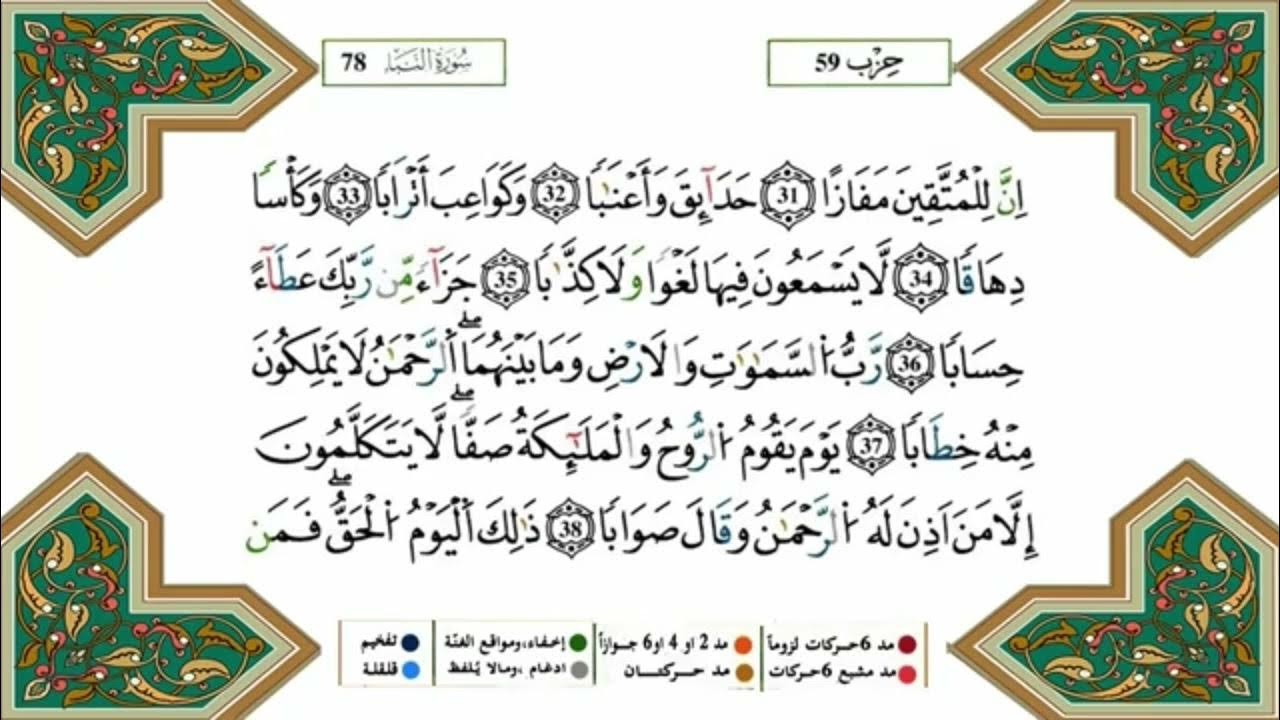 حِزْب 59
سُورَةُ النَّبَإِ 78
اِنَّ لِلْمُتَّقِينَ مَفَازًا 31 حَدَآئِقَ وَأَعْنَٰبًا 32 وَكَوَاعِبَ أَتْرَابًا 33 وَكَأْسًا
دِهَاقًا 34 لَّا يَسْمَعُونَ فِيهَا لَغْوًا وَلَا كِذَّٰبًا 35 جَزَآءً مِّن رَّبِّكَ عَطَآءً
حِسَابًا 36 رَّبُّ اُ۬لسَّمَٰوَٰتِ وَالَارْضِ وَمَا بَيْنَهُمَا اَ۬لرَّحْمَٰنُ لَا يَمْلِكُونَ
مِنْهُ خِطَابًا 37 يَوْمَ يَقُومُ اُ۬لرُّوحُ وَالْمَلَٰٓئِكَةُ صَفًّا لَّا يَتَكَلَّمُونَ
إِلَّا مَنَ اَذِنَ لَهُ اُ۬لرَّحْمَٰنُ وَقَالَ صَوَابًا 38 ذَٰلِكَ اَ۬لْيَوْمُ اُ۬لْحَقُّ فَمَن
مد 6 حركات لزوماً مد 2 او 4 او 6 جوازاً إخفاء، ومواقع الغنّة تفخيم
مد مشبع 6 حركات مد حركتان ادغام، ومالا يُلفظ قلقلة